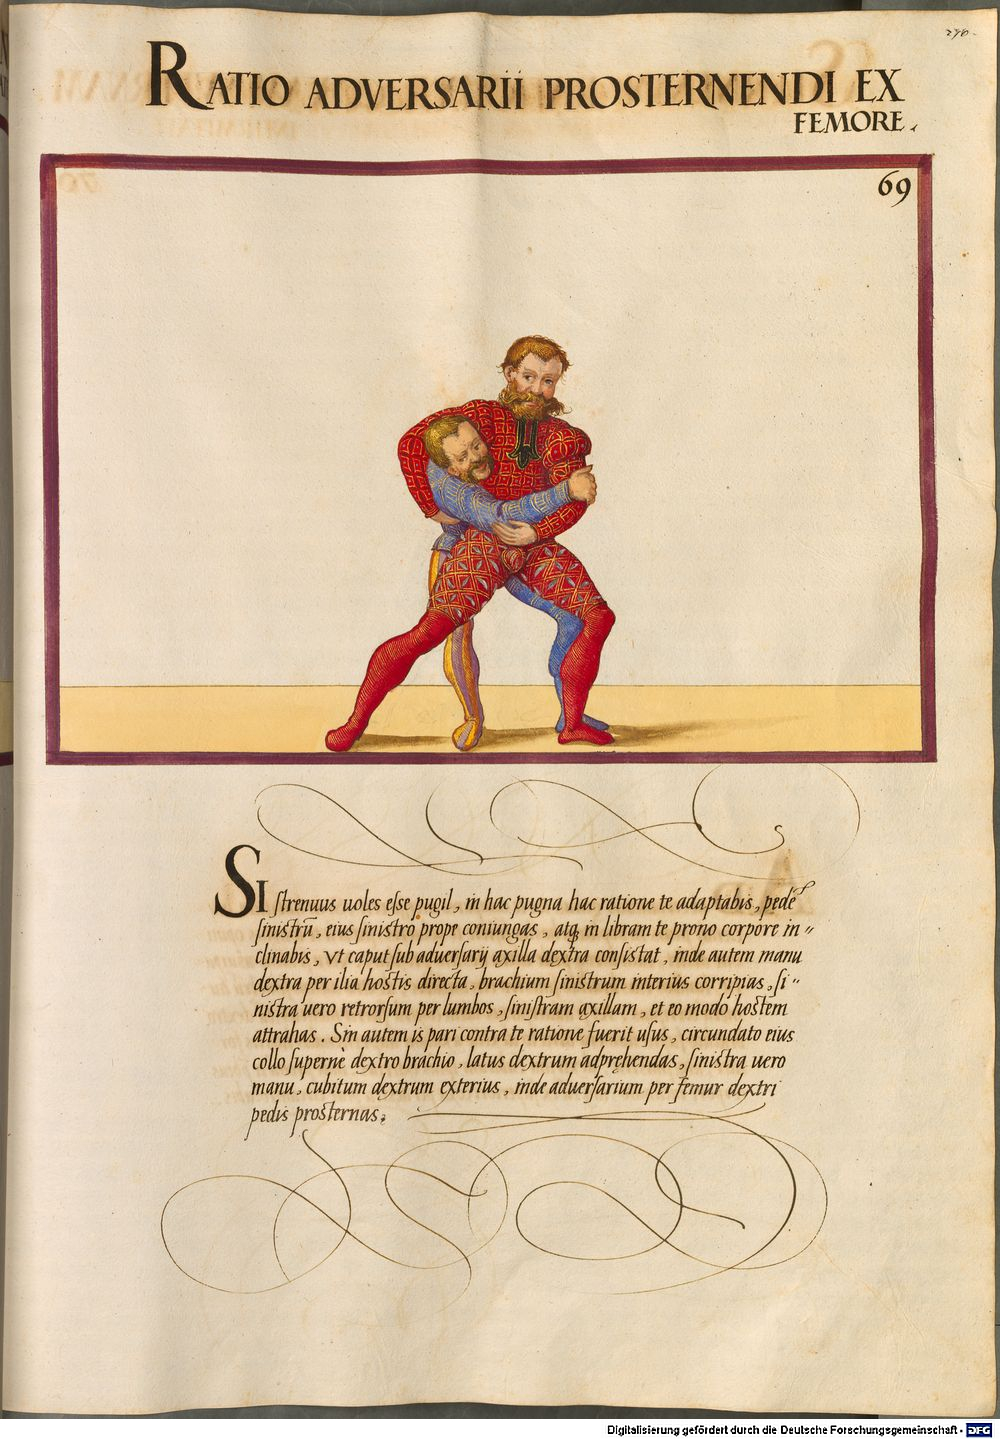 290.
RATIO ADVERSARII PROSTERNENDI EX
FEMORE.
69
SI strenuus uoles esse pugil, in hac pugna hac ratione te adaptabis, pedē
sinistrū, eius sinistro prope coniungas, atq; in libram te prono corpore in=
clinabis, vt caput sub aduersarij axilla dextra consistat, inde autem manu
dextra per ilia hostis directa, brachium sinistrum interius corripias, si=
nistra uero retrorsum per lumbos, sinistram axillam, et eo modo hostem
attrahas. Sin autem is pari contra te ratione fuerit usus, circundato eius
collo supernè dextro brachio, latus dextrum adpręhendas, sinistra uero
manu, cubitum dextrum exterius, inde aduersarium per femur dextri
pedis prosternas;
Digitalisierung gefördert durch die Deutsche Forschungsgemeinschaft - DFG